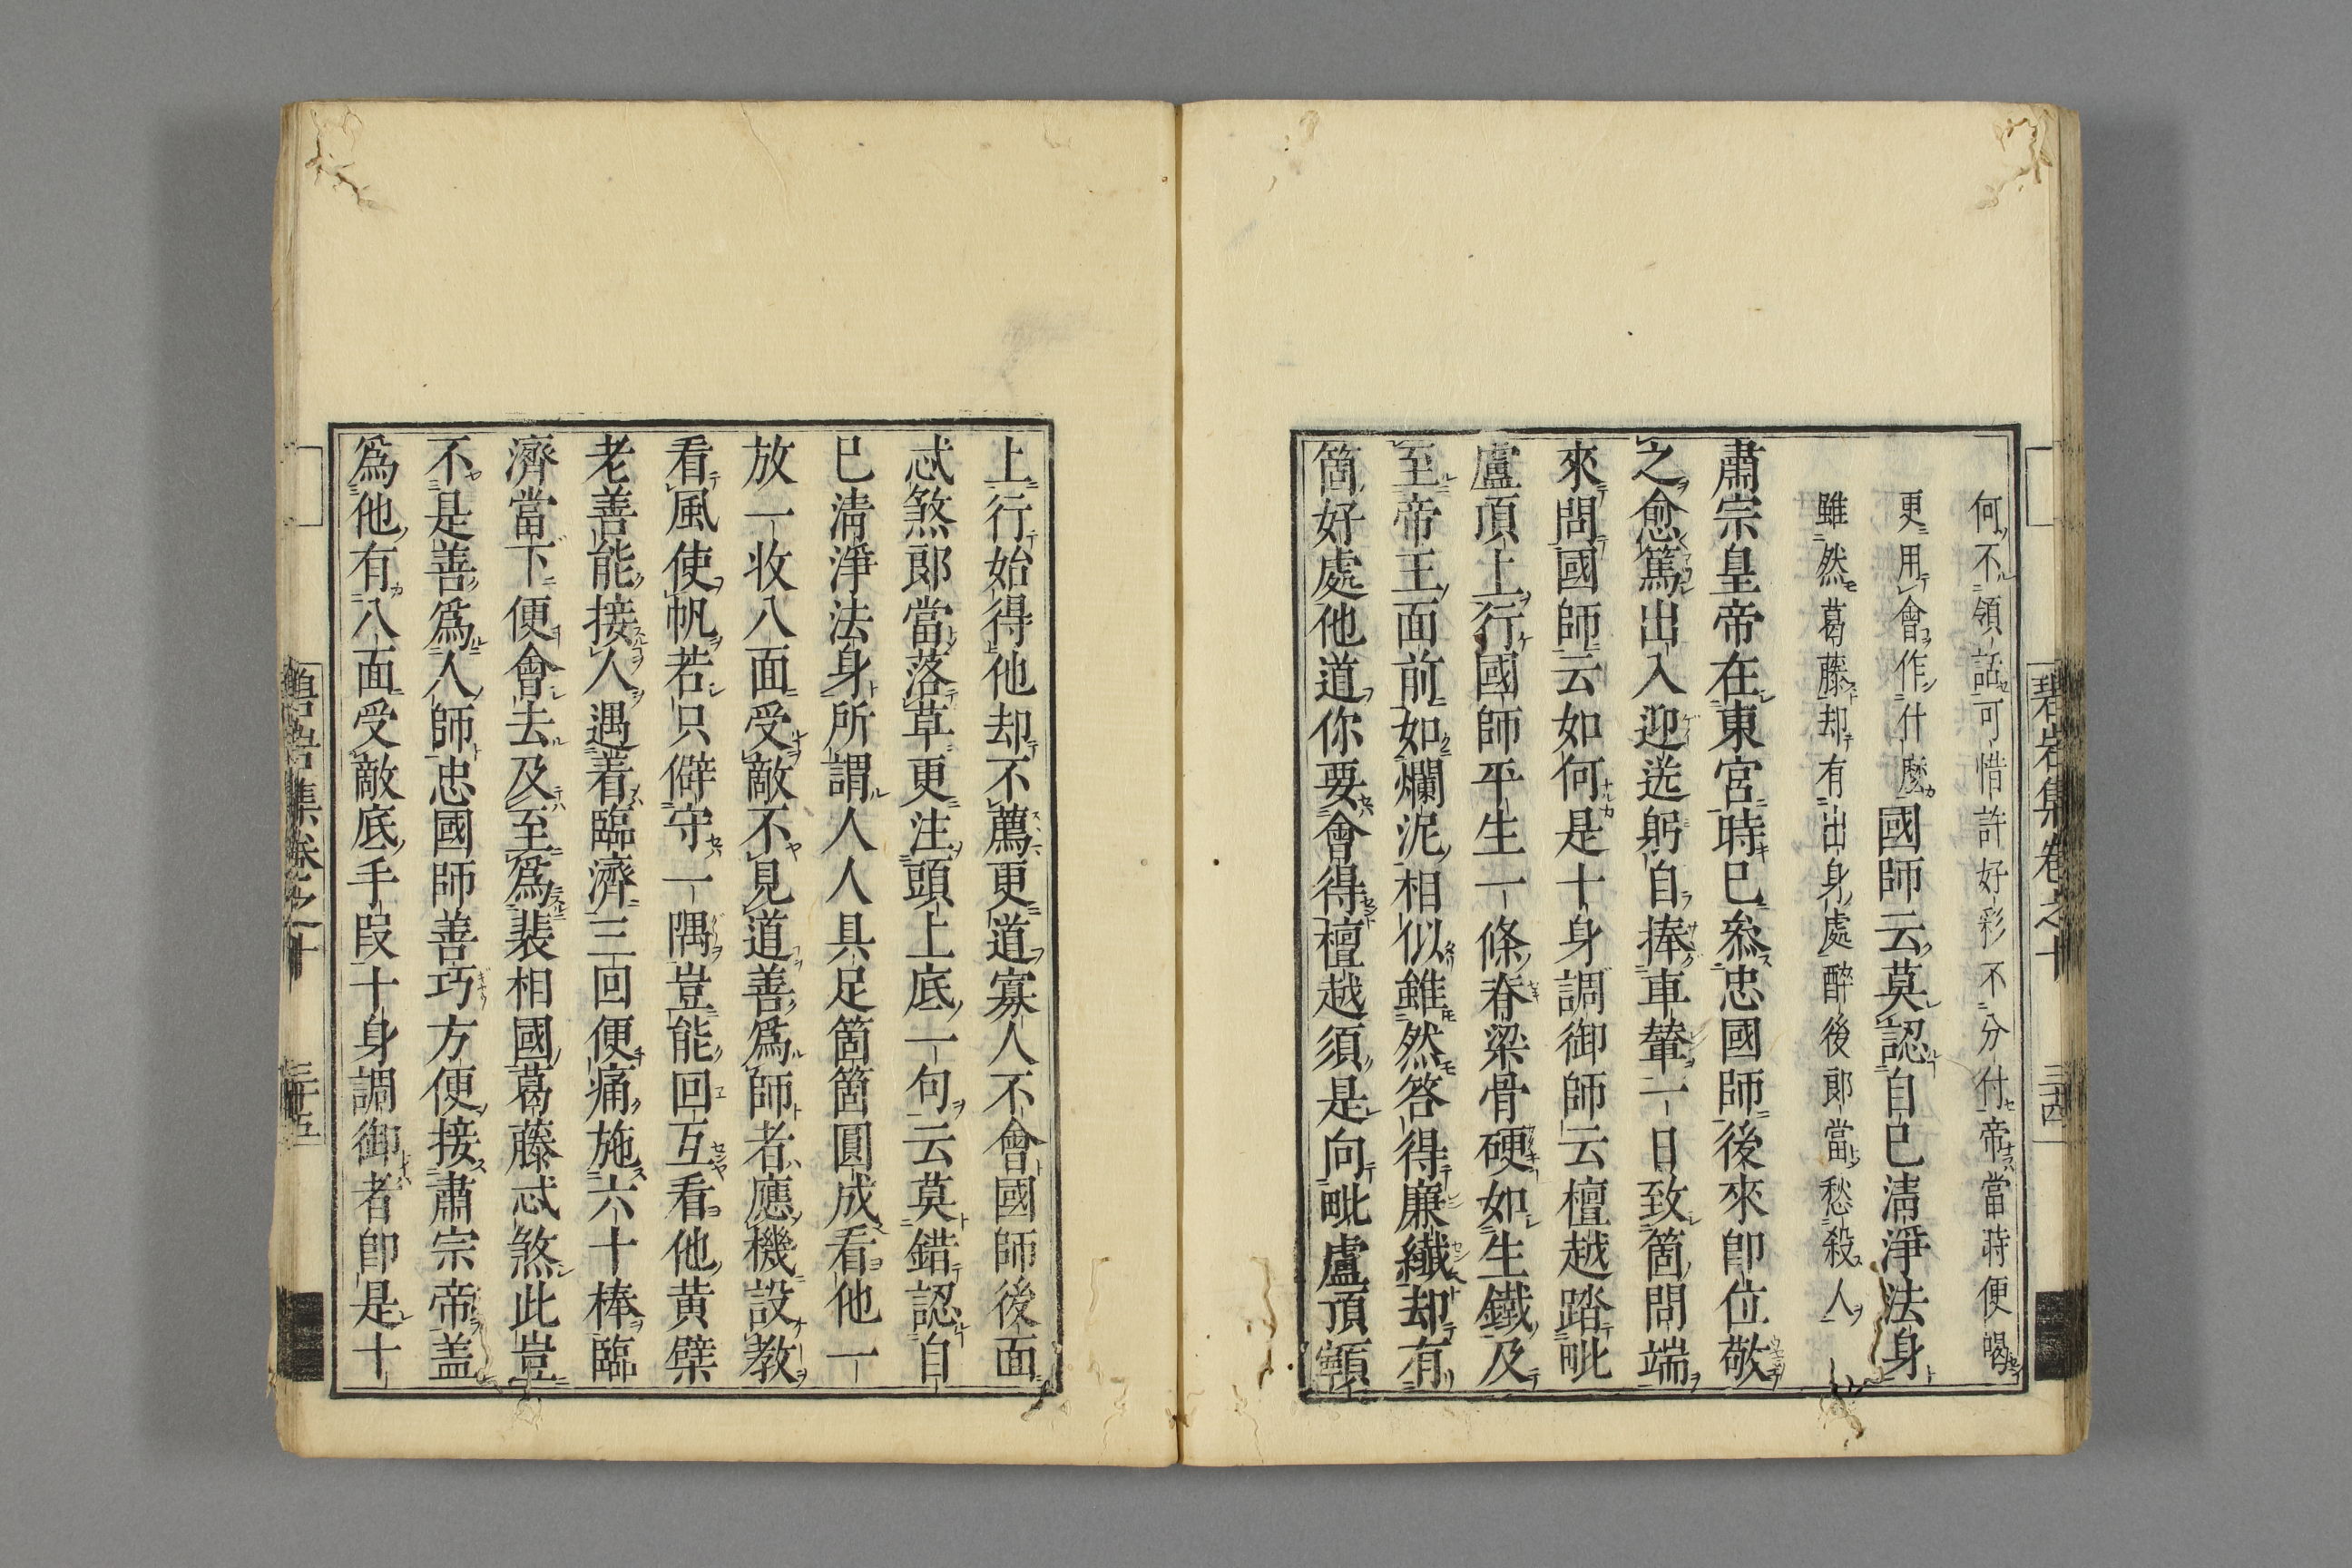 碧岩集卷之十 三十四
何不領話可惜許好彩不分付帝當時便喝
更用會作什麽國師云莫認自已清淨法身
雖然葛藤却有出身處醉後郎當愁殺人
肅宗皇帝在東宮時已叅忠國師後來卽位敬
之愈篤出入迎送躬自捧車輦一日致箇問端
來問國師云如何是十身調御師云檀越踏毗
盧頂上行國師平生一條脊梁骨硬如生鐵及
至帝王面前如爛泥相似雖然答得廉纎却有
箇好處他道你要會得檀越須是向毗盧頂𩕳
上行始得他却不薦更道寡人不會國師後面
忒煞郎當落草更注頭上底一句云莫錯認自
已清淨法身所謂人人具足箇箇圓成看他一
放一收八面受敵不見道善爲師者應機設教
看風使帆若只僻守一隅豈能回互看他黄檗
老善能接人遇着臨濟三回便痛施六十棒臨
濟當下便會去及至爲裴相國葛藤忒煞此豈
不是善爲人師忠國師善巧方便接肅宗帝盖
爲他有八面受敵底手段十身調御者卽是十
碧岩集卷之十 三十五